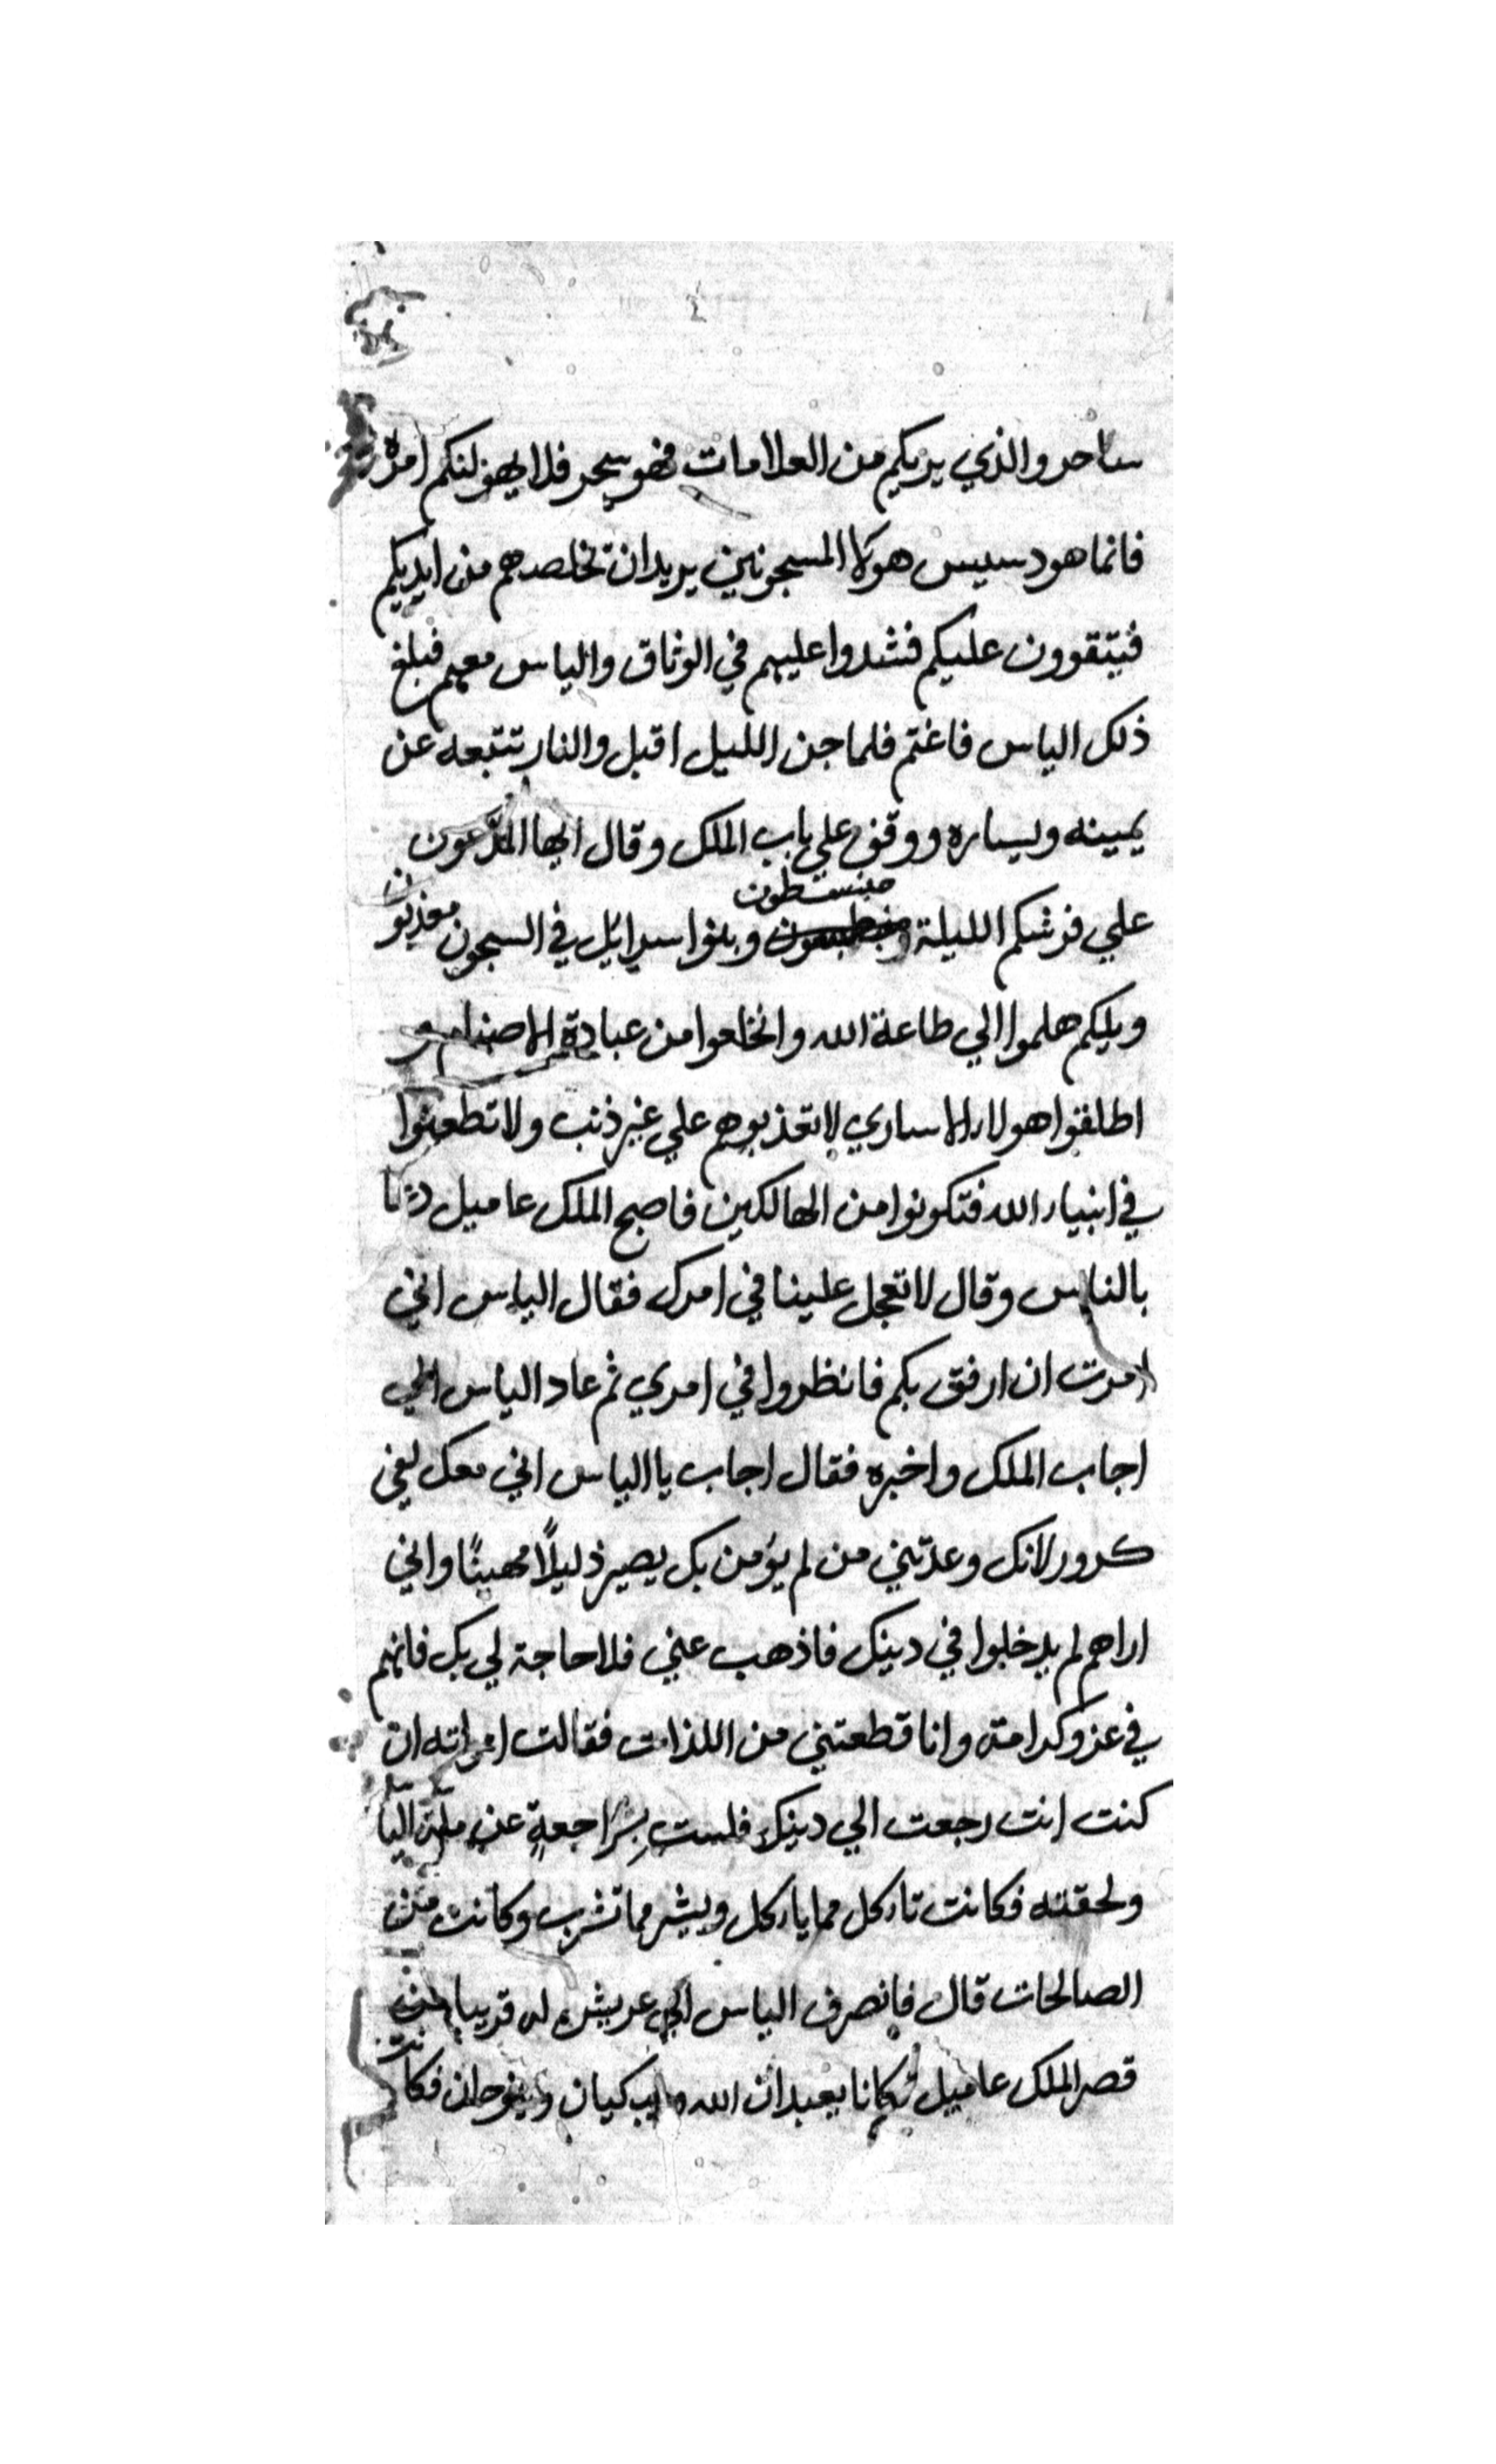 ساحر والذي يريكم من العلامات فهو سحر فلا يهولنكم امره
فانما هو دسيس هولا المسجونين يريد ان تخلصهم من ايديكم
فيتقوون عليكم فشدوا عليهم في الوثاق والياس معهم فبلغ
ذلك الياس فاغتم فلما جن الليل اقبل والنار تتبعه عن
يمينه ويساره ووقف علي باب الملك وقال ايها المدعون
علي فرشكم الليلة منبسطون وبنوا سرائل في السجون معذبون
ويلكم هلموا الي طاعة الله وانخلعوا من عبادة الاصنام و
اطلقوا هولاء الاساري لا تعذبوهم علي غير ذنب ولا تطعنوا
في انبياء الله فتكونوا من الهالكين فاصبح الملك عاميل
بالناس وقال لا تعجل علينا في امرك فقال الياس اني
امرت ان ارفق بكم فانظروا في امري ثم عاد الياس الي
اجاب الملك واخبره فقال اجاب يا الياس اني معك لفي
كرور لانك وعدتني من لم يؤمن بك يصير ذليلًا مهينًا واني
اراهم لم يدخلوا في دينك فاذهب عني فلا حاجة لي بك فانهم
في عز وكرامة وانا قطعتني من اللذات فقالت امراته ان
كنت انت رجعت الي دينك فلست براجعةٍ عن ملة اليا
ولحقته فكانت تاءكل مما ياءكل ويشر مما تشرب وكانت من
الصالحات قال فانصرف الياس الي عريش له قريبا من
قصر الملك عاميل فكانا يعبدان الله ويبكيان وينوحان فكانت